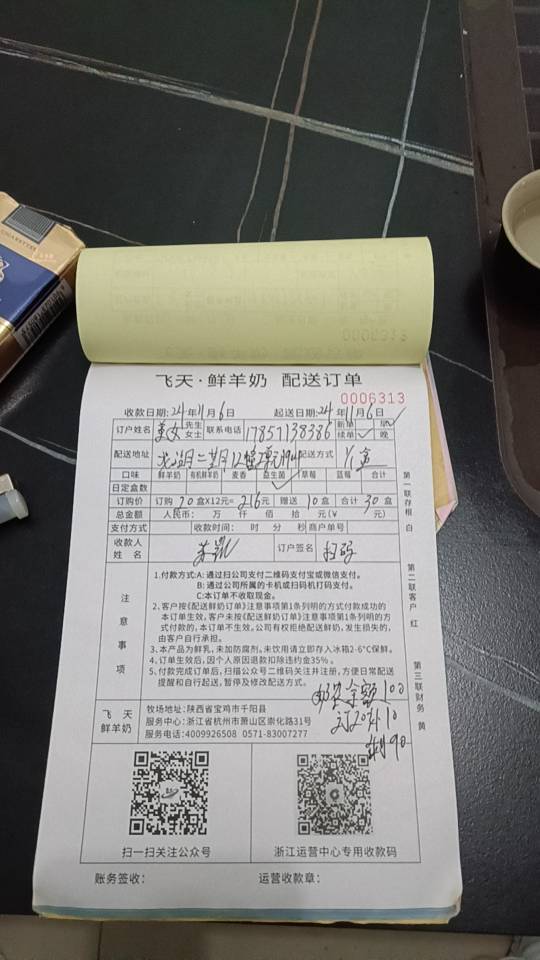 CIGARETTES
飞天·鲜羊奶 配送订单
0006313
收款日期:24年11月6日 起送日期:24年11月6日
订户姓名 先生 女士 联系电话 17857138386 新单 续单 ✓ 早 ✓ 晚
配送地址 配送方式 1/盒
口味 鲜羊奶 有机鲜羊奶 麦香 益生菌 ✓ 草莓 蓝莓 合计
日定盒数
订购价 订购 20 盒X12元= 216元 赠送 10盒 合计 30 盒
总金额 人民币: 万 仟 佰 拾 元(¥ 元)
支付方式 收款时间: 时 分 秒 商户单号
收款人姓名 订户签名 扫码
注意事项
1.付款方式:A:通过扫公司支付二维码支付宝或微信支付。
B:通过公司所属的卡机或扫码机打码支付。
C:本订单不收取现金。
2、客户按《配送鲜奶订单》注意事项第1条列明的方式付款成功的
本订单生效,客户未按《配送鲜奶订单》注意事项第1条列明的方
式付款的,本订单不生效,公司有权拒绝配送鲜奶,发生损失的,
由客户自行承担。
3、本产品为鲜乳,未加防腐剂。未饮用请立即存入冰箱2-6℃保鲜。
4、订单生效后,因个人原因退款扣除违约金35%。
5、付款完成订单后,扫描公众号二维码关注并注册,方便日常配送
提醒和自行起送,暂停及修改配送方式。
第一联存根 白
第二联客户 红
第三联财务 黄
余额100
订20送10
剩90
飞天鲜羊奶
牧场地址:陕西省宝鸡市千阳县
服务中心:浙江省杭州市萧山区崇化路31号
服务电话:4009926508 0571-83007277
扫一扫关注公众号 浙江运营中心专用收款码
账务签收: 运营收款章: